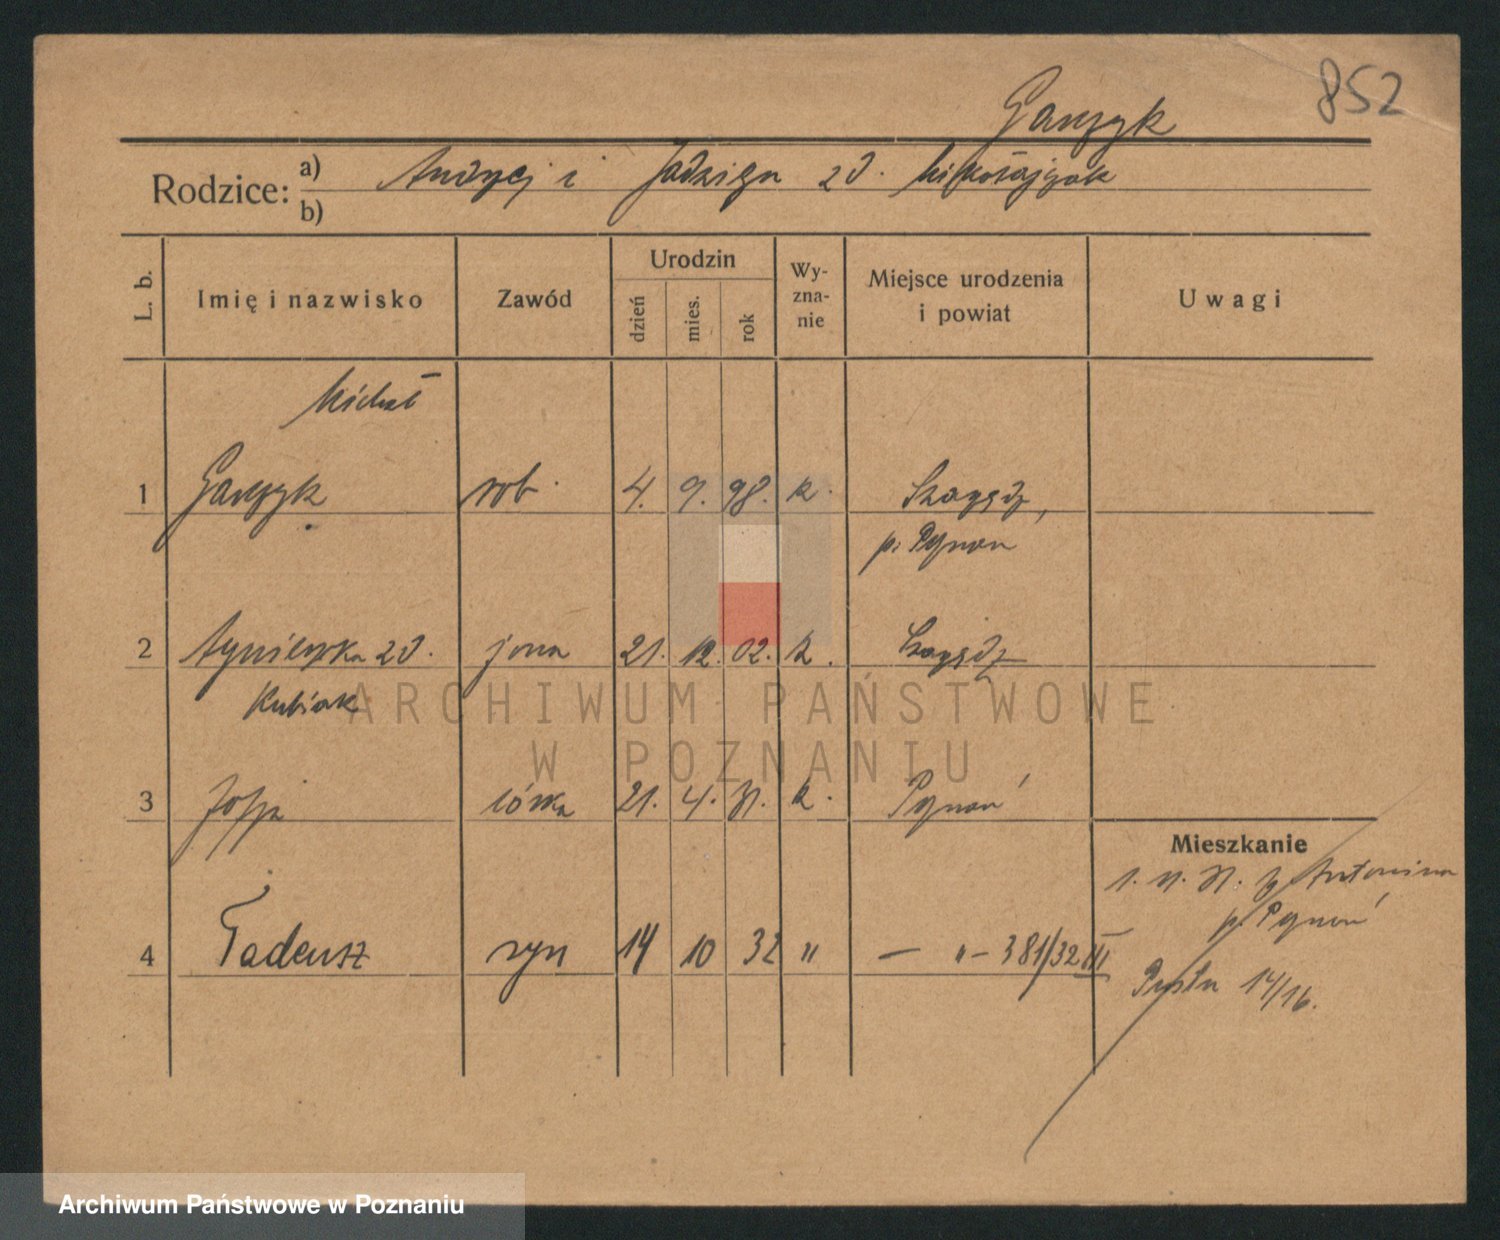 852
Rodzice: a) Andrzej i Jadwiga zd. Mikołajczak
b)
L. b. Imię i nazwisko Zawód Urodzin dzień mies. rok Wy-zna-nie Miejsce urodzenia i powiat Uwagi
Michał
1 rob. 4. 9. 98. k.
p.
2 Agnieszka zd. żona 21. 12. 02. k.
Kubiak
3 Zofja córka 21. 4. 31. k. Poznań
Mieszkanie
Antonina
p. Poznań
4 Tadeusz syn 14 10 32 " — " — 381/32 III
14/16.
ARCHIWUM PAŃSTWOWE
W POZNANIU
Archiwum Państwowe w Poznaniu